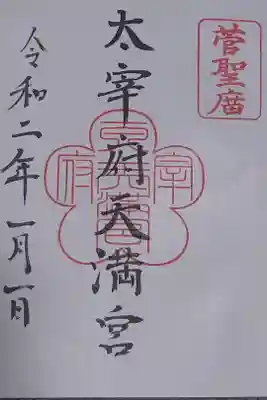 菅聖庿
太宰府天満宮
令和二年一月一日